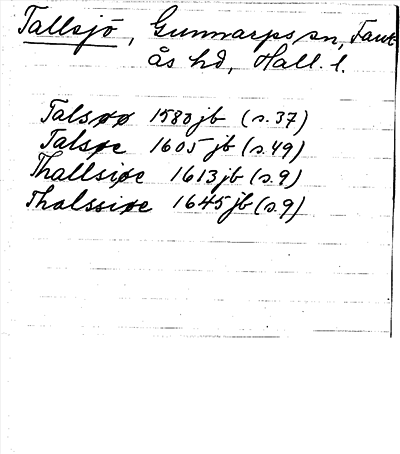 Tallsjö, Gunnarps sn, Faur
ås hd, Hall. l.
Talsøø 1580 jb (s. 37)
Talsøe 1605 jb (s. 49)
Thallsiøe 1613 jb (s. 9)
Thalssiøe 1645 jb (s. 9)